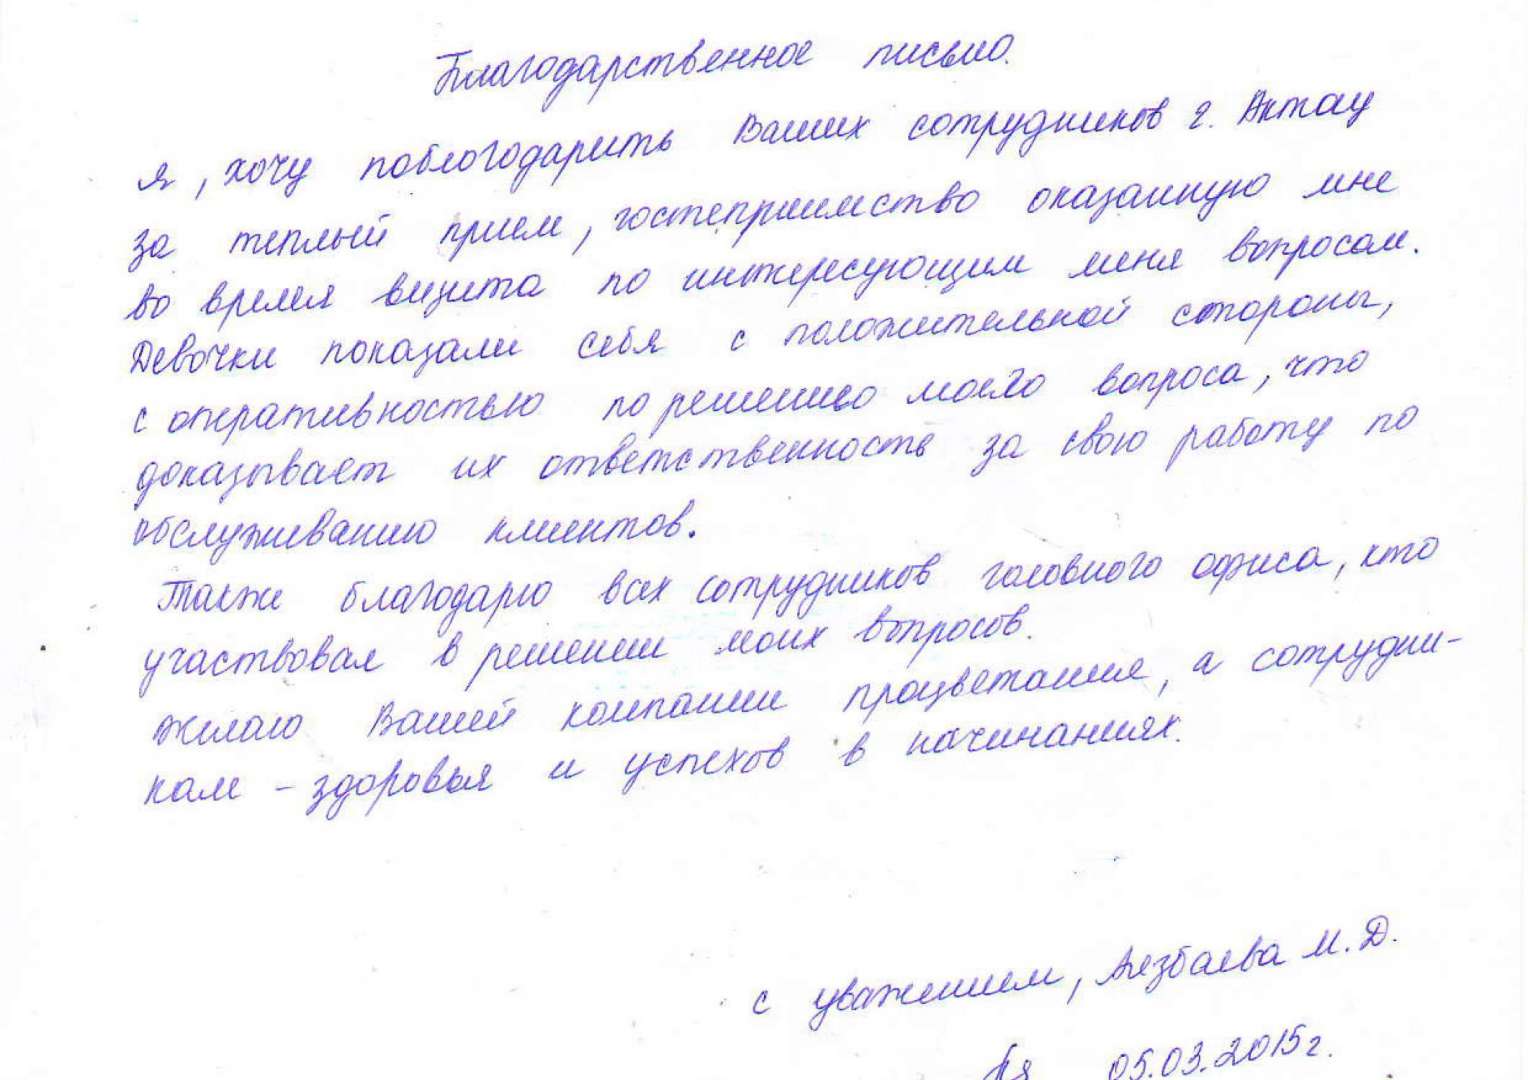 Благодарственное письмо.
Я, хочу поблогодарить Ваших сотрудников г. Актау
за теплый прием, гостеприимство оказанную мне
во время визита по интересующим меня вопросам.
Девочки показали себя с положительной стороны,
с оперативностью по решению моего вопроса, что
доказывает их ответственность за свою работу по
обслуживанию клиентов.
Также благодарю всех сотрудников головного офиса, кто
участвовал в решении моих вопросов.
Желаю Вашей компании процветания, а сотрудни-
кам – здоровья и успехов в начинаниях.
с уважением, М.Д.
05.03.2015г.